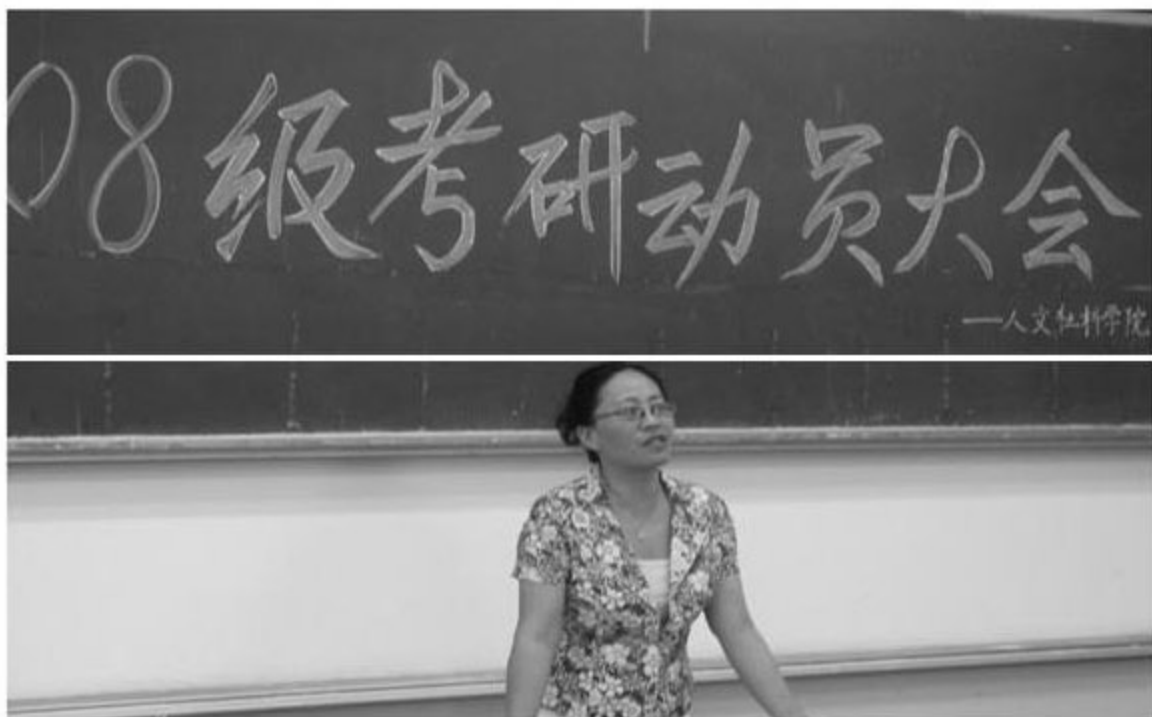 08级考研动员大会
——人文社科学院